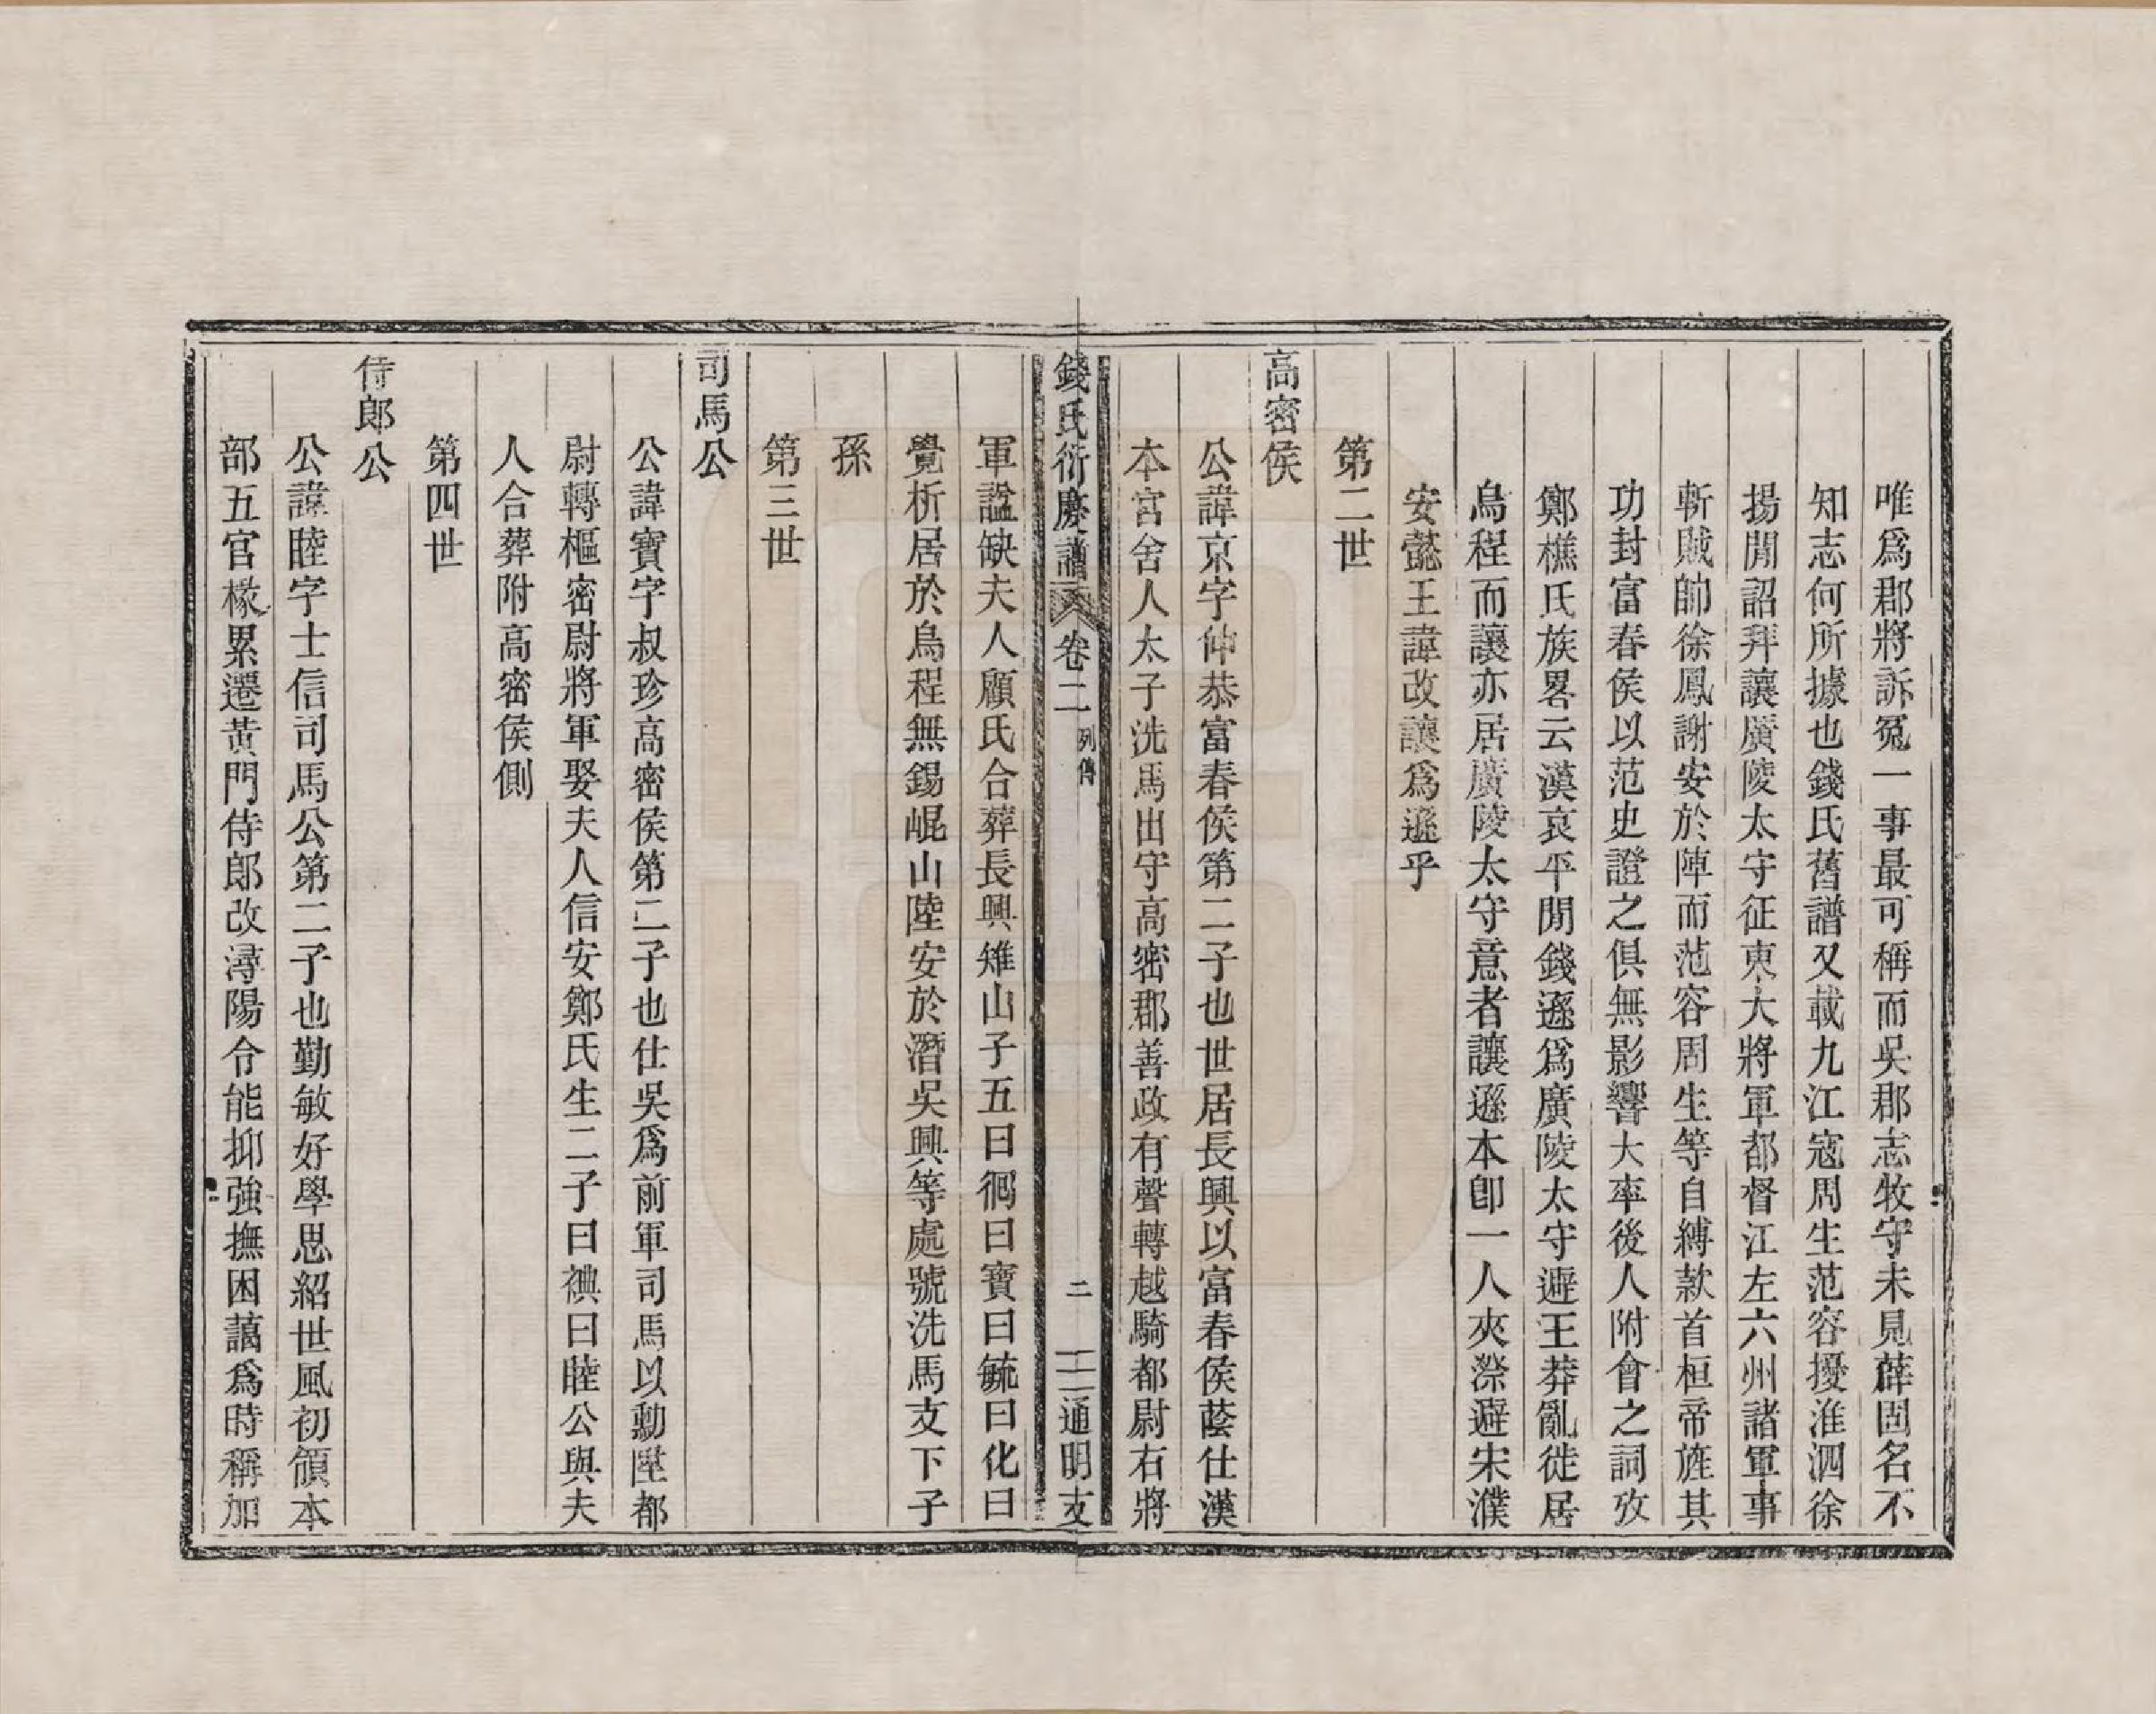 唯爲郡將訴冤一事最可稱而吳郡志牧守未見薛固名不
知志何所據也錢氏舊譜又載九江寇周生范容擾淮泗徐
揚閒詔拜讓廣陵太守征東大將軍都督江左六州諸軍事
斬賊帥徐鳳謝安於陣而范容周生等自縛款首桓帝旌其
功封富春侯以范史證之俱無影響大率後人附會之詞攷
鄭樵氏族畧云漢哀平閒錢遜爲廣陵太守避王莽亂徙居
烏程而讓亦居廣陵太守意者讓遜本卽一人夾漈避宋濮
安懿王諱改讓爲遜乎
第二世
高密侯
公諱京字仲恭富春侯第二子也世居長興以富春侯蔭仕漢
本宮舍人太子洗馬出守高密郡善政有聲轉越騎都尉右將
錢氏衍慶譜 卷二 列傳 二 通明支
軍諡缺夫人顧氏合葬長興雉山子五曰徊曰寶曰毓曰化曰
覺析居於烏程無錫崐山陸安於潛吳興等處號洗馬支下子
孫
第三世
司馬公
公諱寶字叔珍高密侯第二子也仕吳爲前軍司馬以勳陞都
尉轉樞密尉將軍娶夫人信安鄭氏生二子曰禩曰睦公與夫
人合葬附高密侯側
第四世
侍郎公
公諱睦字士信司馬公第二子也勤敏好學思紹世風初領本
部五官橡累遷黃門侍郎改潯陽令能抑強撫困藹爲時稱加